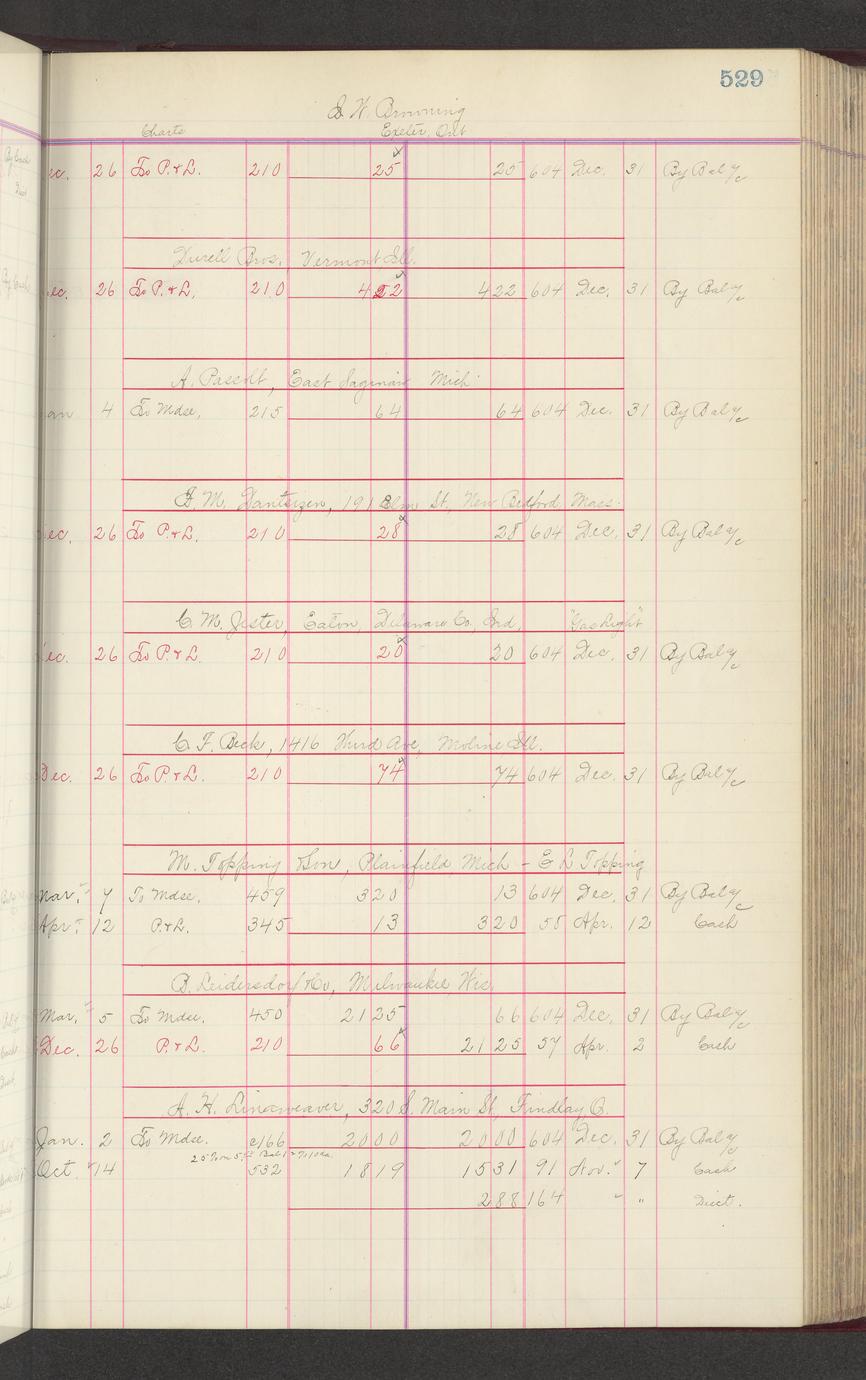 529
I. W. Browning
Charts Exeter, Ont
ec. 26 To P. & L. 210 25 25 604 Dec. 31 By Bal a/c
Durell Bros. Vermont, Ill.
ec. 26 To P. & L. 210 422 422 604 Dec. 31 By Bal a/c
A. Pascolt, East Saginaw Mich
an 4 To Mdse, 215 64 64 604 Dec. 31 By Bal a/c
M. 191 Elm St, New Bedford, Mass.
ec. 26 To P. & L. 210 28 28 604 Dec. 31 By Bal a/c
C. M. Jester, Eaton, Delaware Co, Ind,
ec. 26 To P. & L. 210 20 20 604 Dec. 31 By Bal a/c
C. F. Beck, 1416 Third Ave, Moline Ill.
Dec. 26 To P. & L. 210 74 74 604 Dec. 31 By Bal a/c
M. Topping & Son, Plainfield Mich - E L Topping
Mar. 7 To Mdse, 459 320 13 604 Dec. 31 By Bal a/c
Apr. 12 P. & L. 345 13 320 58 Apr. 12 Cash
B. Leidersdorf & Co, Milwaukee Wis,
Mar. 5 To Mdse, 450 2125 66 604 Dec. 31 By Bal a/c
Dec. 26 P. & L. 210 66 2125 57 Apr. 2 Cash
A. H. Linaweaver, 320 S. Main St, Findlay O.
Jan. 2 To Mdse. c166 2000 2000 604 Dec. 31 By Bal a/c
Oct 14 532 1819 1531 91 Nov. 7 Cash
288 164 " " Disct.